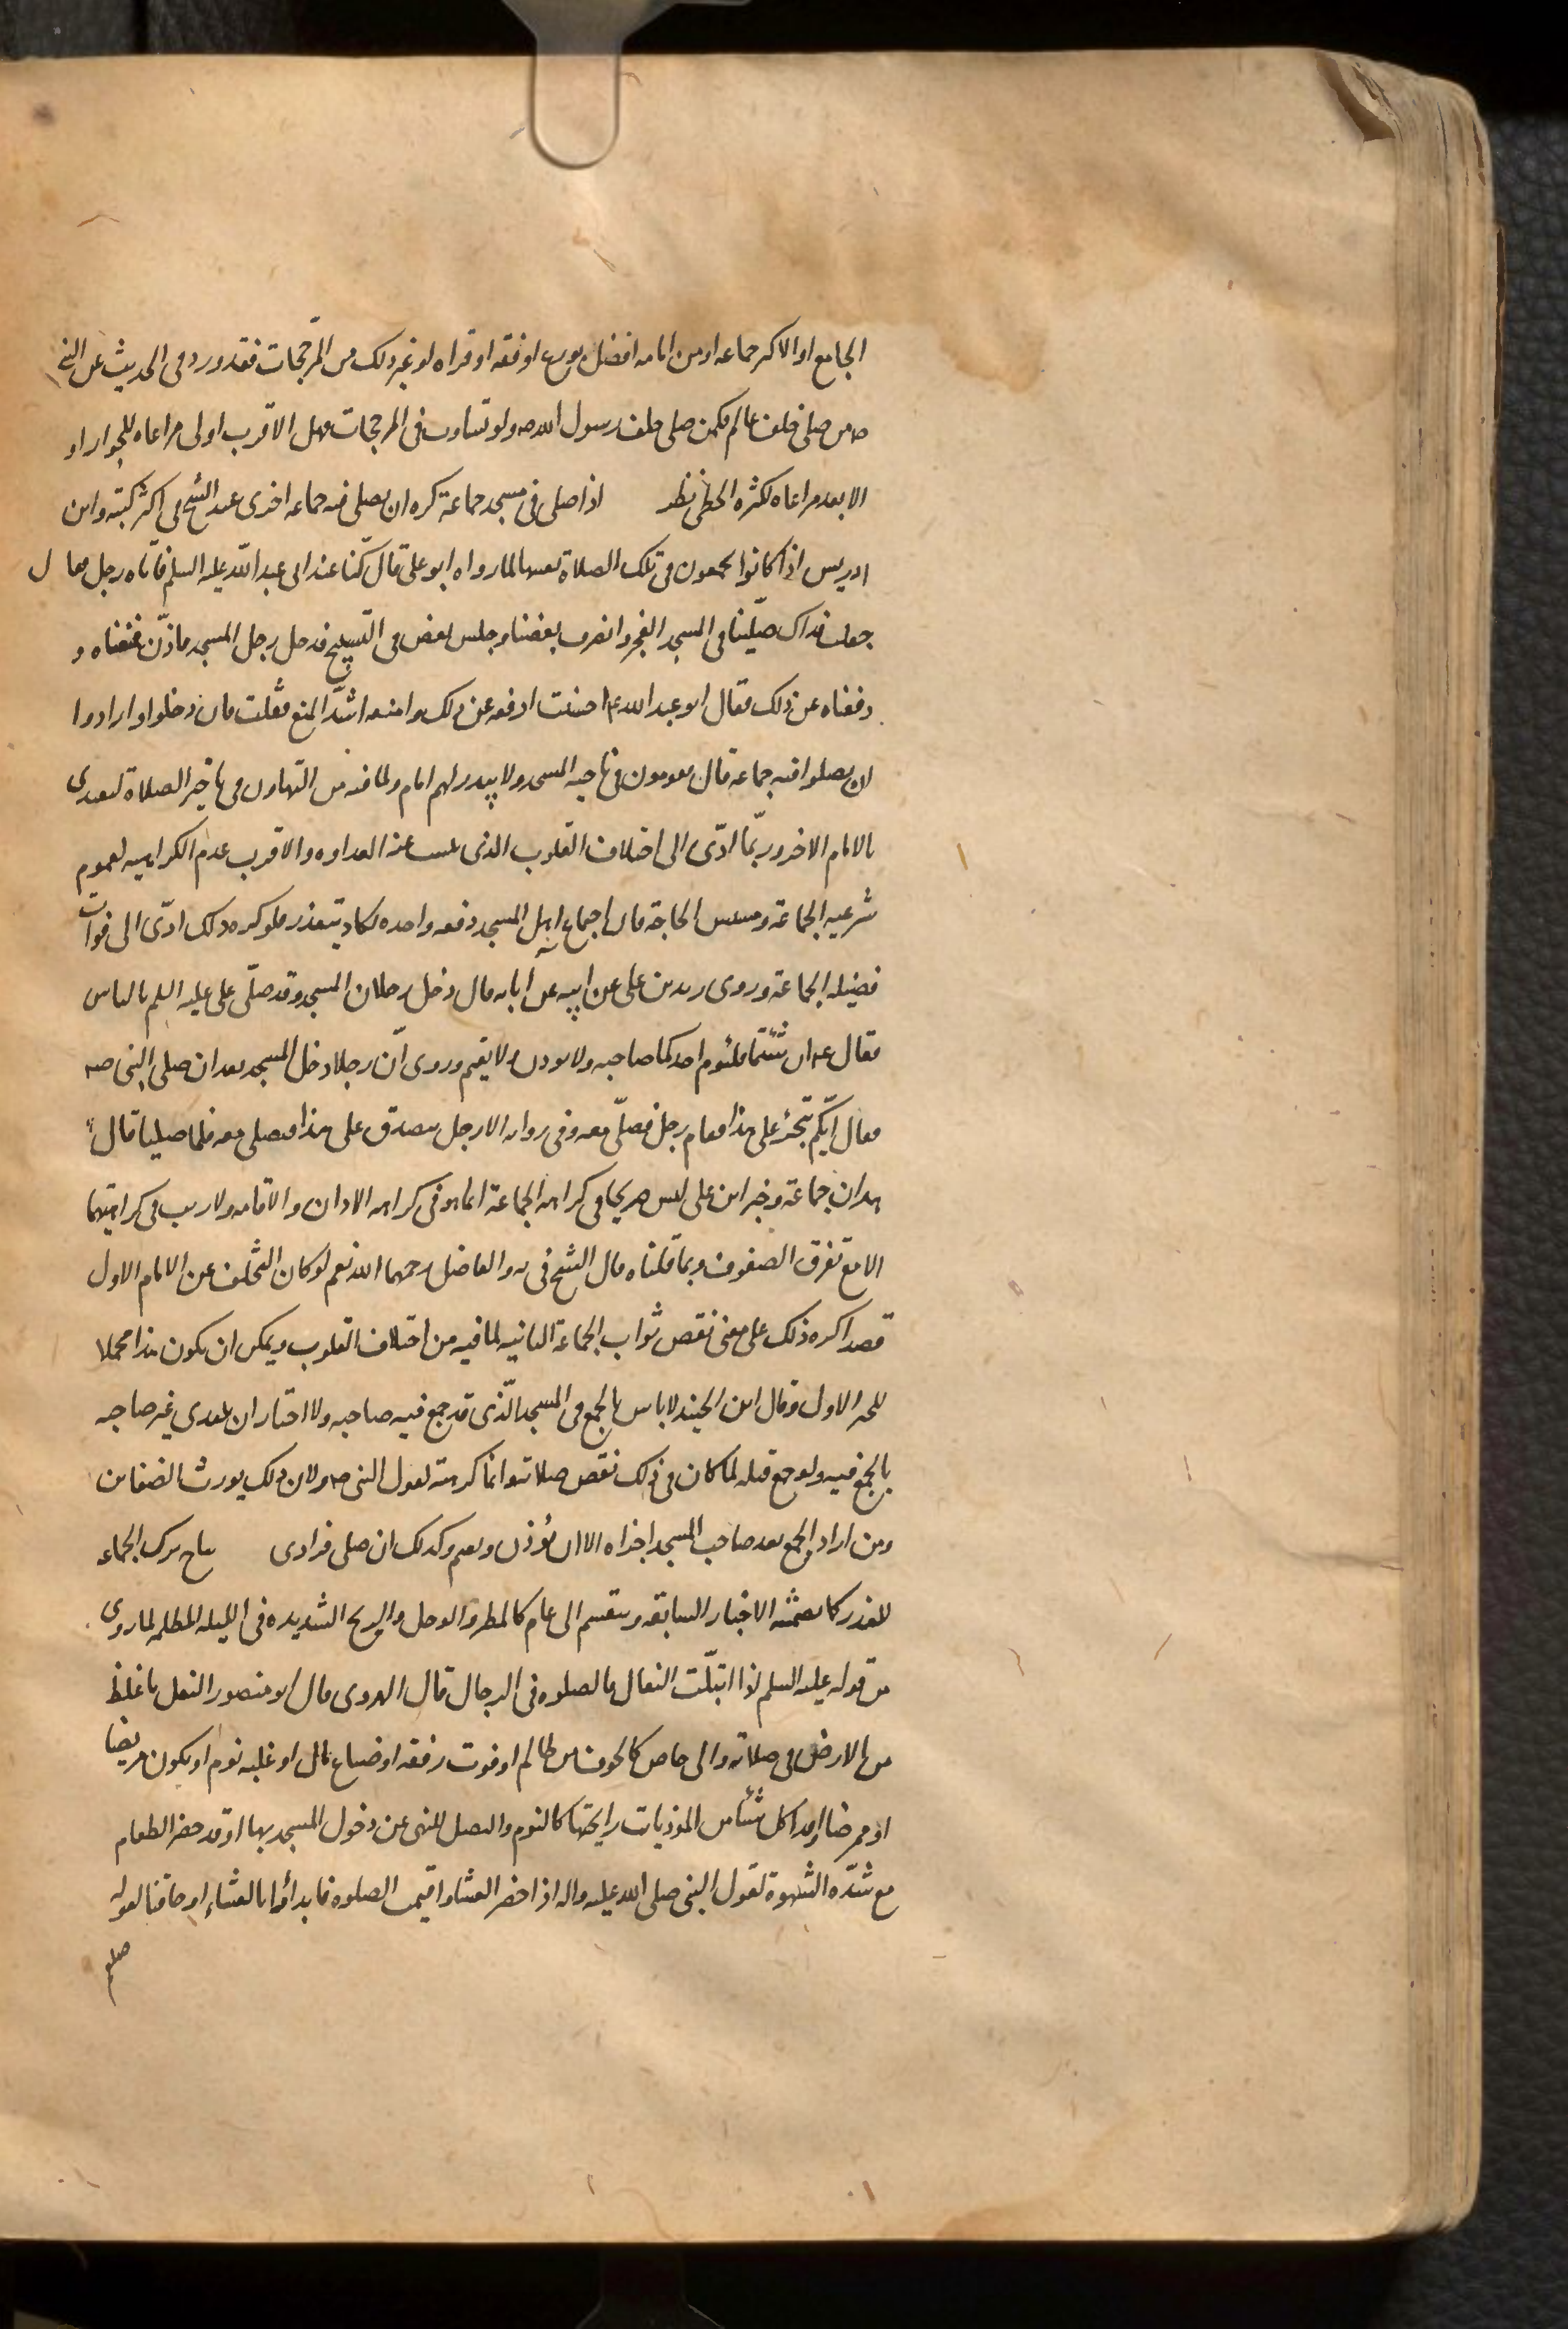 الجامع او الاكثر جماعه او من امامه افضل بورع او فقه او قراه او غير ذلك من المرجحات فقد ورد فى الحديث عن النبى
ص من صلى خلف عالم فكمن صلى خلف رسول الله ص ولو تساوت فى المرجحات فهل الاقرب اولى مراعاه للجوار او
الابعد مراعاه لكثره الخطى نظر اذا صلى فى مسجد جماعة كره ان يصلى فيه جماعه اخرى عند الشيخ فى اكثر كتبه وابن
ادريس اذا كانوا يجمعون فى تلك الصلاة بعينها لما رواه ابو على قال كنا عند ابى عبد الله عليه السلم فأتاه رجل فقال
جعلت فداك صلّينا فى المسجد الفجر وانصرف بعضنا وجلس بعض فى التسبيح فدخل رجل المسجد فاذّن فمنعناه و
دفعناه عن ذلك فقال ابو عبد الله ع احسنت ادفعه عن ذلك وامنعه اشدّ المنع فقلت فان دخلوا وارادوا
ان يصلوا فيه جماعه قال يقومون فى ناحيه المسجد ولا يبدر لهم امام ولما فيه من التهاون فى تاخير الصلاة ليقتدى
بالامام الاخر وربّما ادّى الى اختلاف القلوب الذى عنه العداوه والاقرب عدم الكراهيه لعموم
شرعيه الجماعة ومسيس الحاجة فان اجماع اهل المسجد دفعه واحده يكاد يتعذر فلو كره ذلك ادّى الى فوات
فضيله الجماعة وروى زيد بن على عن ابيه عن ابائه قال دخل رجلان المسجد وقد صلّى على عليه السلم بالناس
فقال ع ان شئتما فليؤم احدكما صاحبه ولا يوذن ولا يقيم وروى انّ رجلا دخل المسجد بعد ان صلى النبى ص
فقال ايّكم يتّجر على هذا فقام رجل فصلّى معه وفى روايه الا رجل يتصدق على هذا فيصلى معه فلما صليا قال
هذان جماعة وخبر ابى على ليس صريحا فى كراهه الجماعة انما هو فى كراهه الاذان والاقامه ولا ريب فى كراهتهما
الا مع تفرق الصفوف وبما قلناه قال الشيخ فى يه والفاضل رحمهما الله نعم لو كان التخلف عن الامام الاول
قصدا كره ذلك على معنى نقص ثواب الجماعة الثانيه لما فيه من اختلاف القلوب ويمكن ان يكون هذا محملا
للخبر الاول وقال ابن الجنيد لا باس بالجمع فى المسجد الّذى قد جمع فيه صاحبه ولا اختار ان يبتدى غير صاحبه
بالجمع فيه ولو جمع قبله لما كان فى ذلك نقص صلاته وانما كرهته لقول النبى ص ولان ذلك يورث الضغاين
ومن اراد الجمع بعد صاحب المسجد اجزاه الا ان يؤذن ويقيم وكذلك ان صلى فرادى يباح ترك الجماعه
للعذر كما تضمنته الاخبار السابقه وينقسم الى عام كالمطر والوحل والريح الشديده فى الليله المظلمه لما روى
من قوله عليه السلم اذا ابتلّت النعال فالصلوه فى الرحال قال الهروى قال ابو منصور النعل ما غلظ
من الارض فى صلابه والى خاص كالخوف من ظالم او فوت رفقه او ضياع مال او غلبه نوم او يكون مريضا
او ممرضا او قد اكل شيئا من الموذيات رايحتها كالثوم والبصل للنهى عن دخول المسجد بها او قد حضر الطعام
مع شدّه الشهوة لقول النبى صلى الله عليه واله اذا حضر العشا واقيمت الصلوه فابدأوا بالعشاء او حاقنا لقوله
صلعم